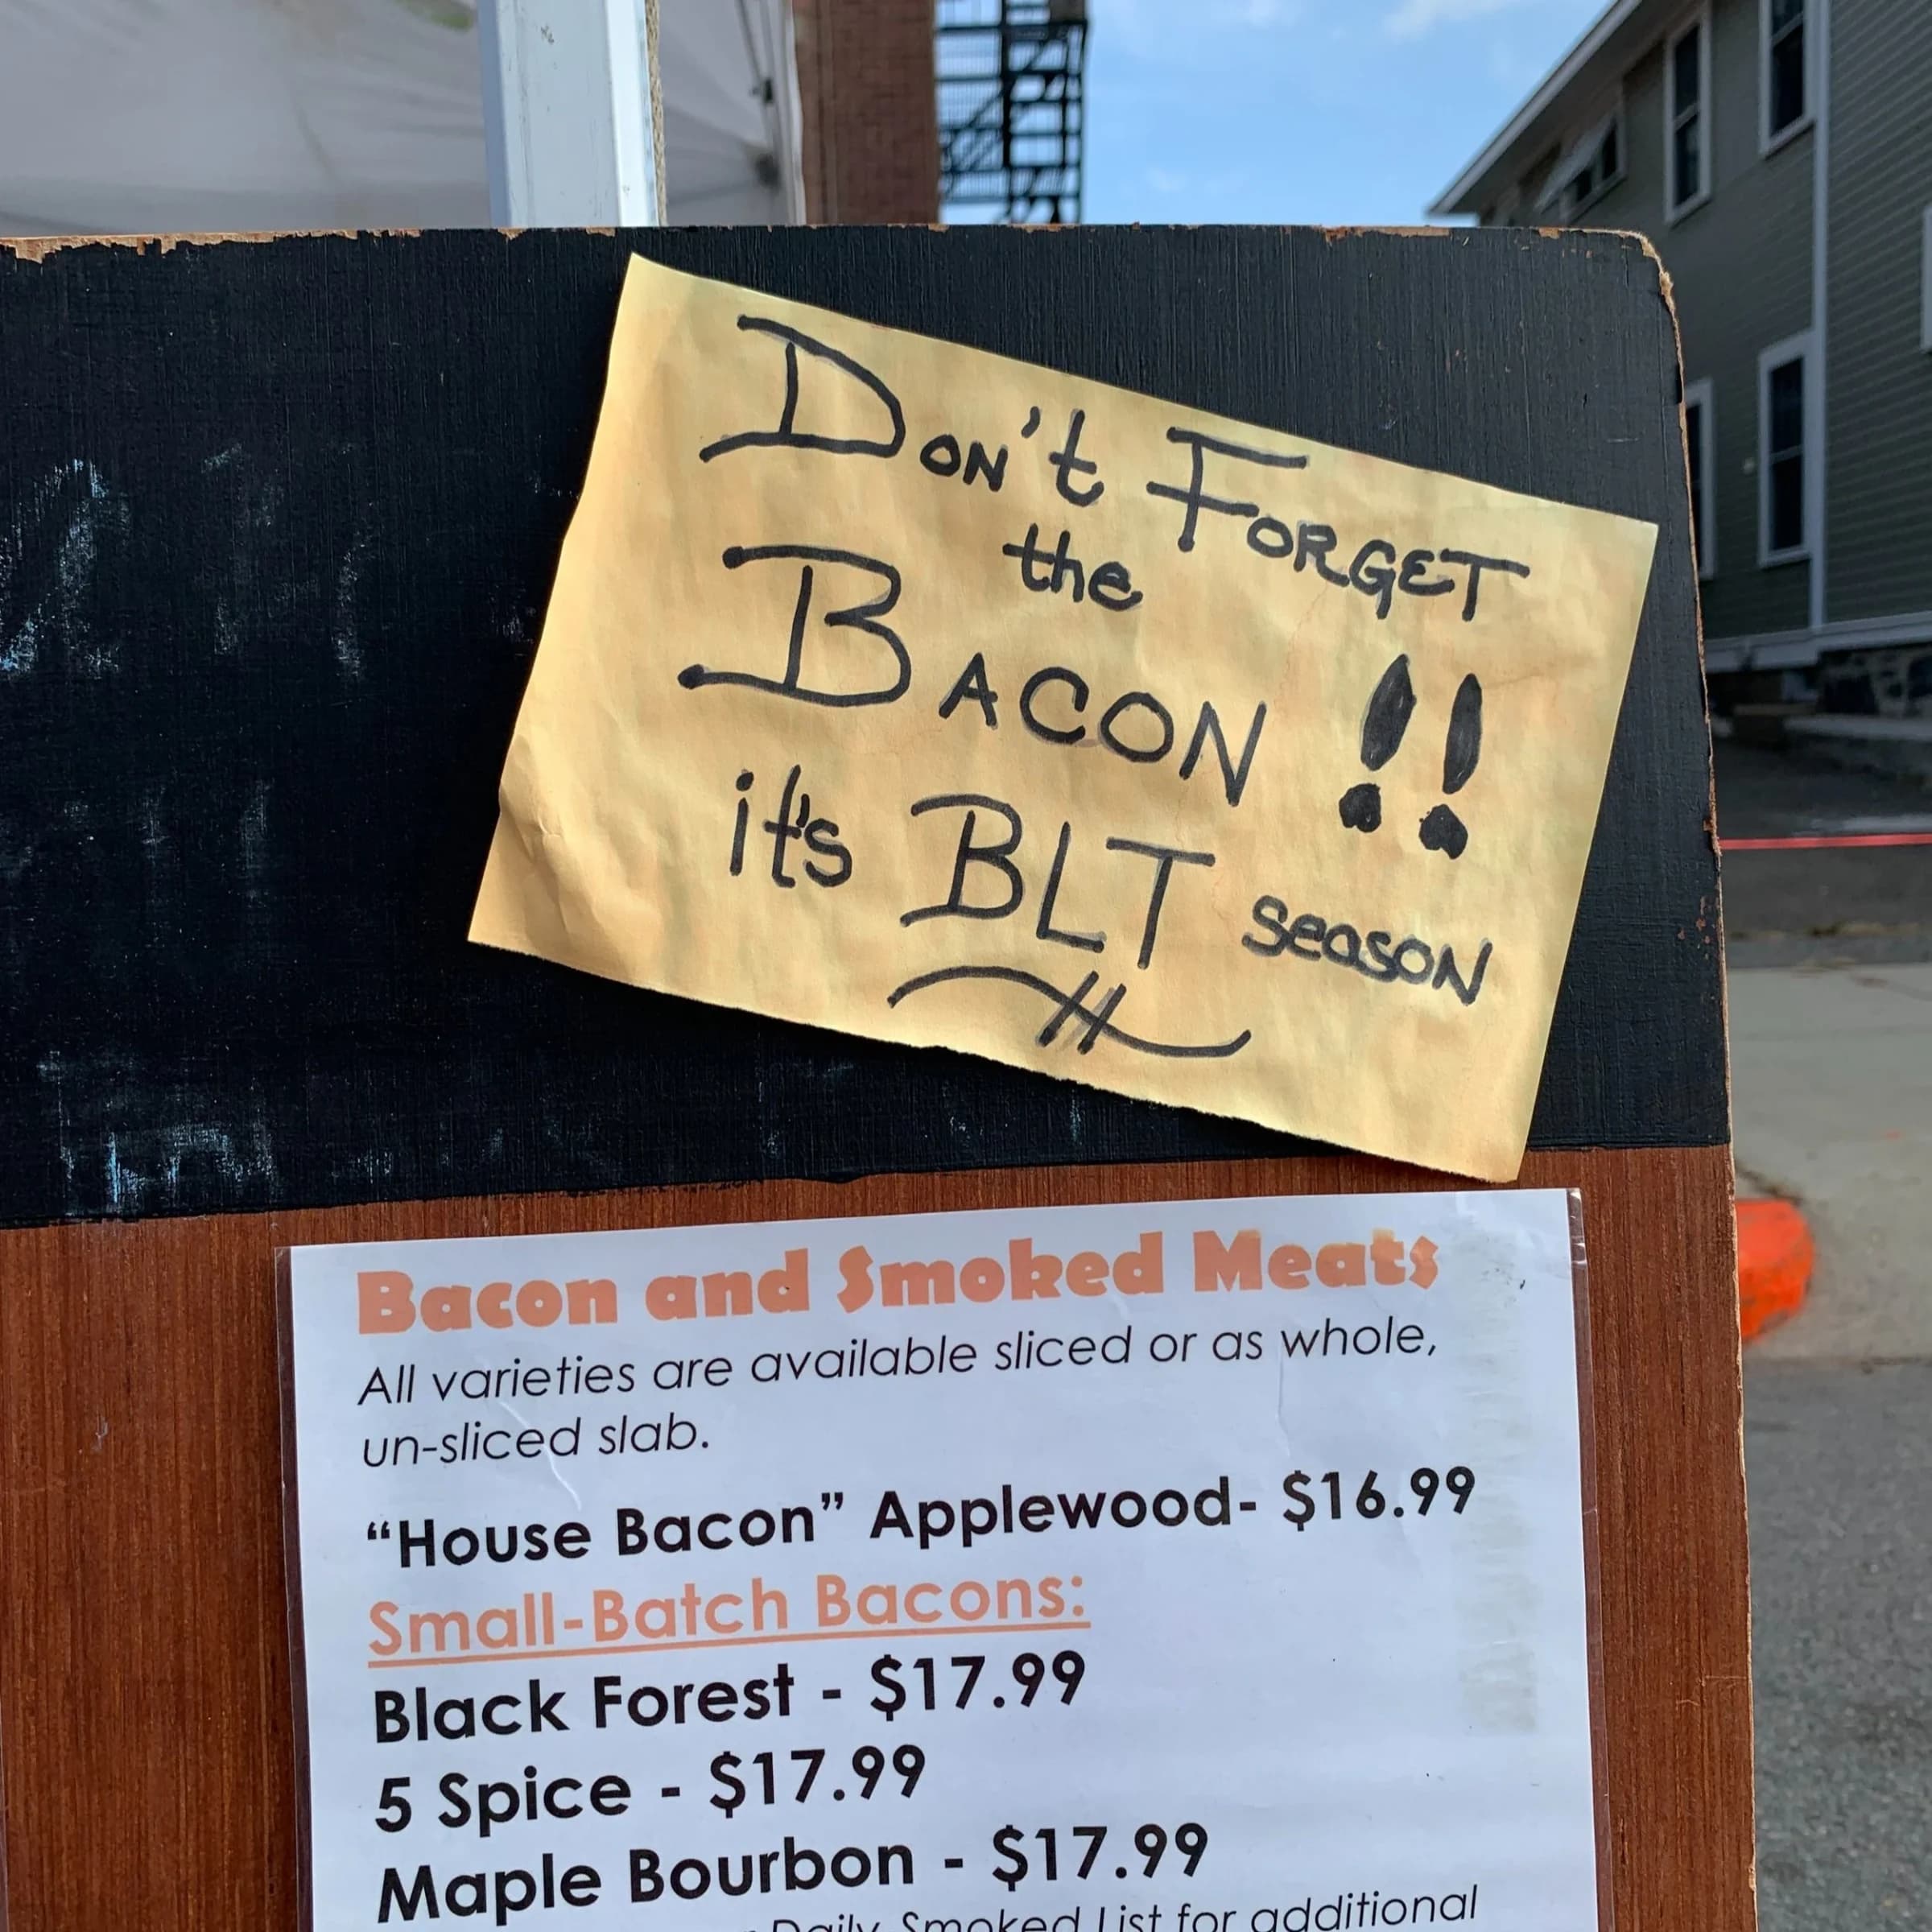 Don't Forget
the
Bacon!!
it's BLT season
Bacon and Smoked Meats
All varieties are available sliced or as whole,
un-sliced slab.
“House Bacon” Applewood- $16.99
Small-Batch Bacons:
Black Forest - $17.99
5 Spice - $17.99
Maple Bourbon - $17.99
Daily Smoked List for additional